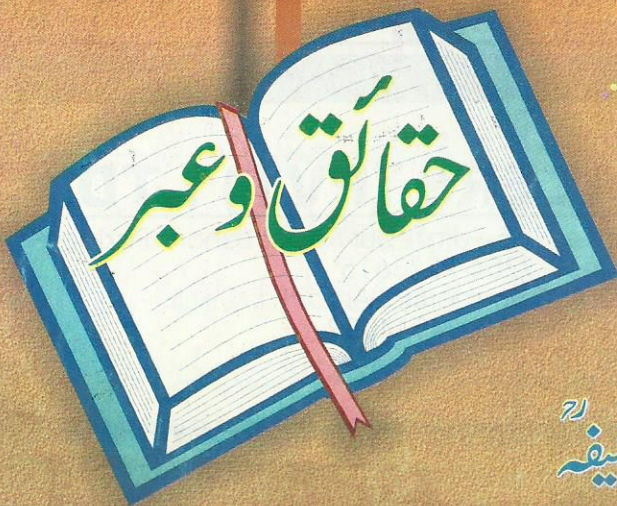 حقائق وعبر